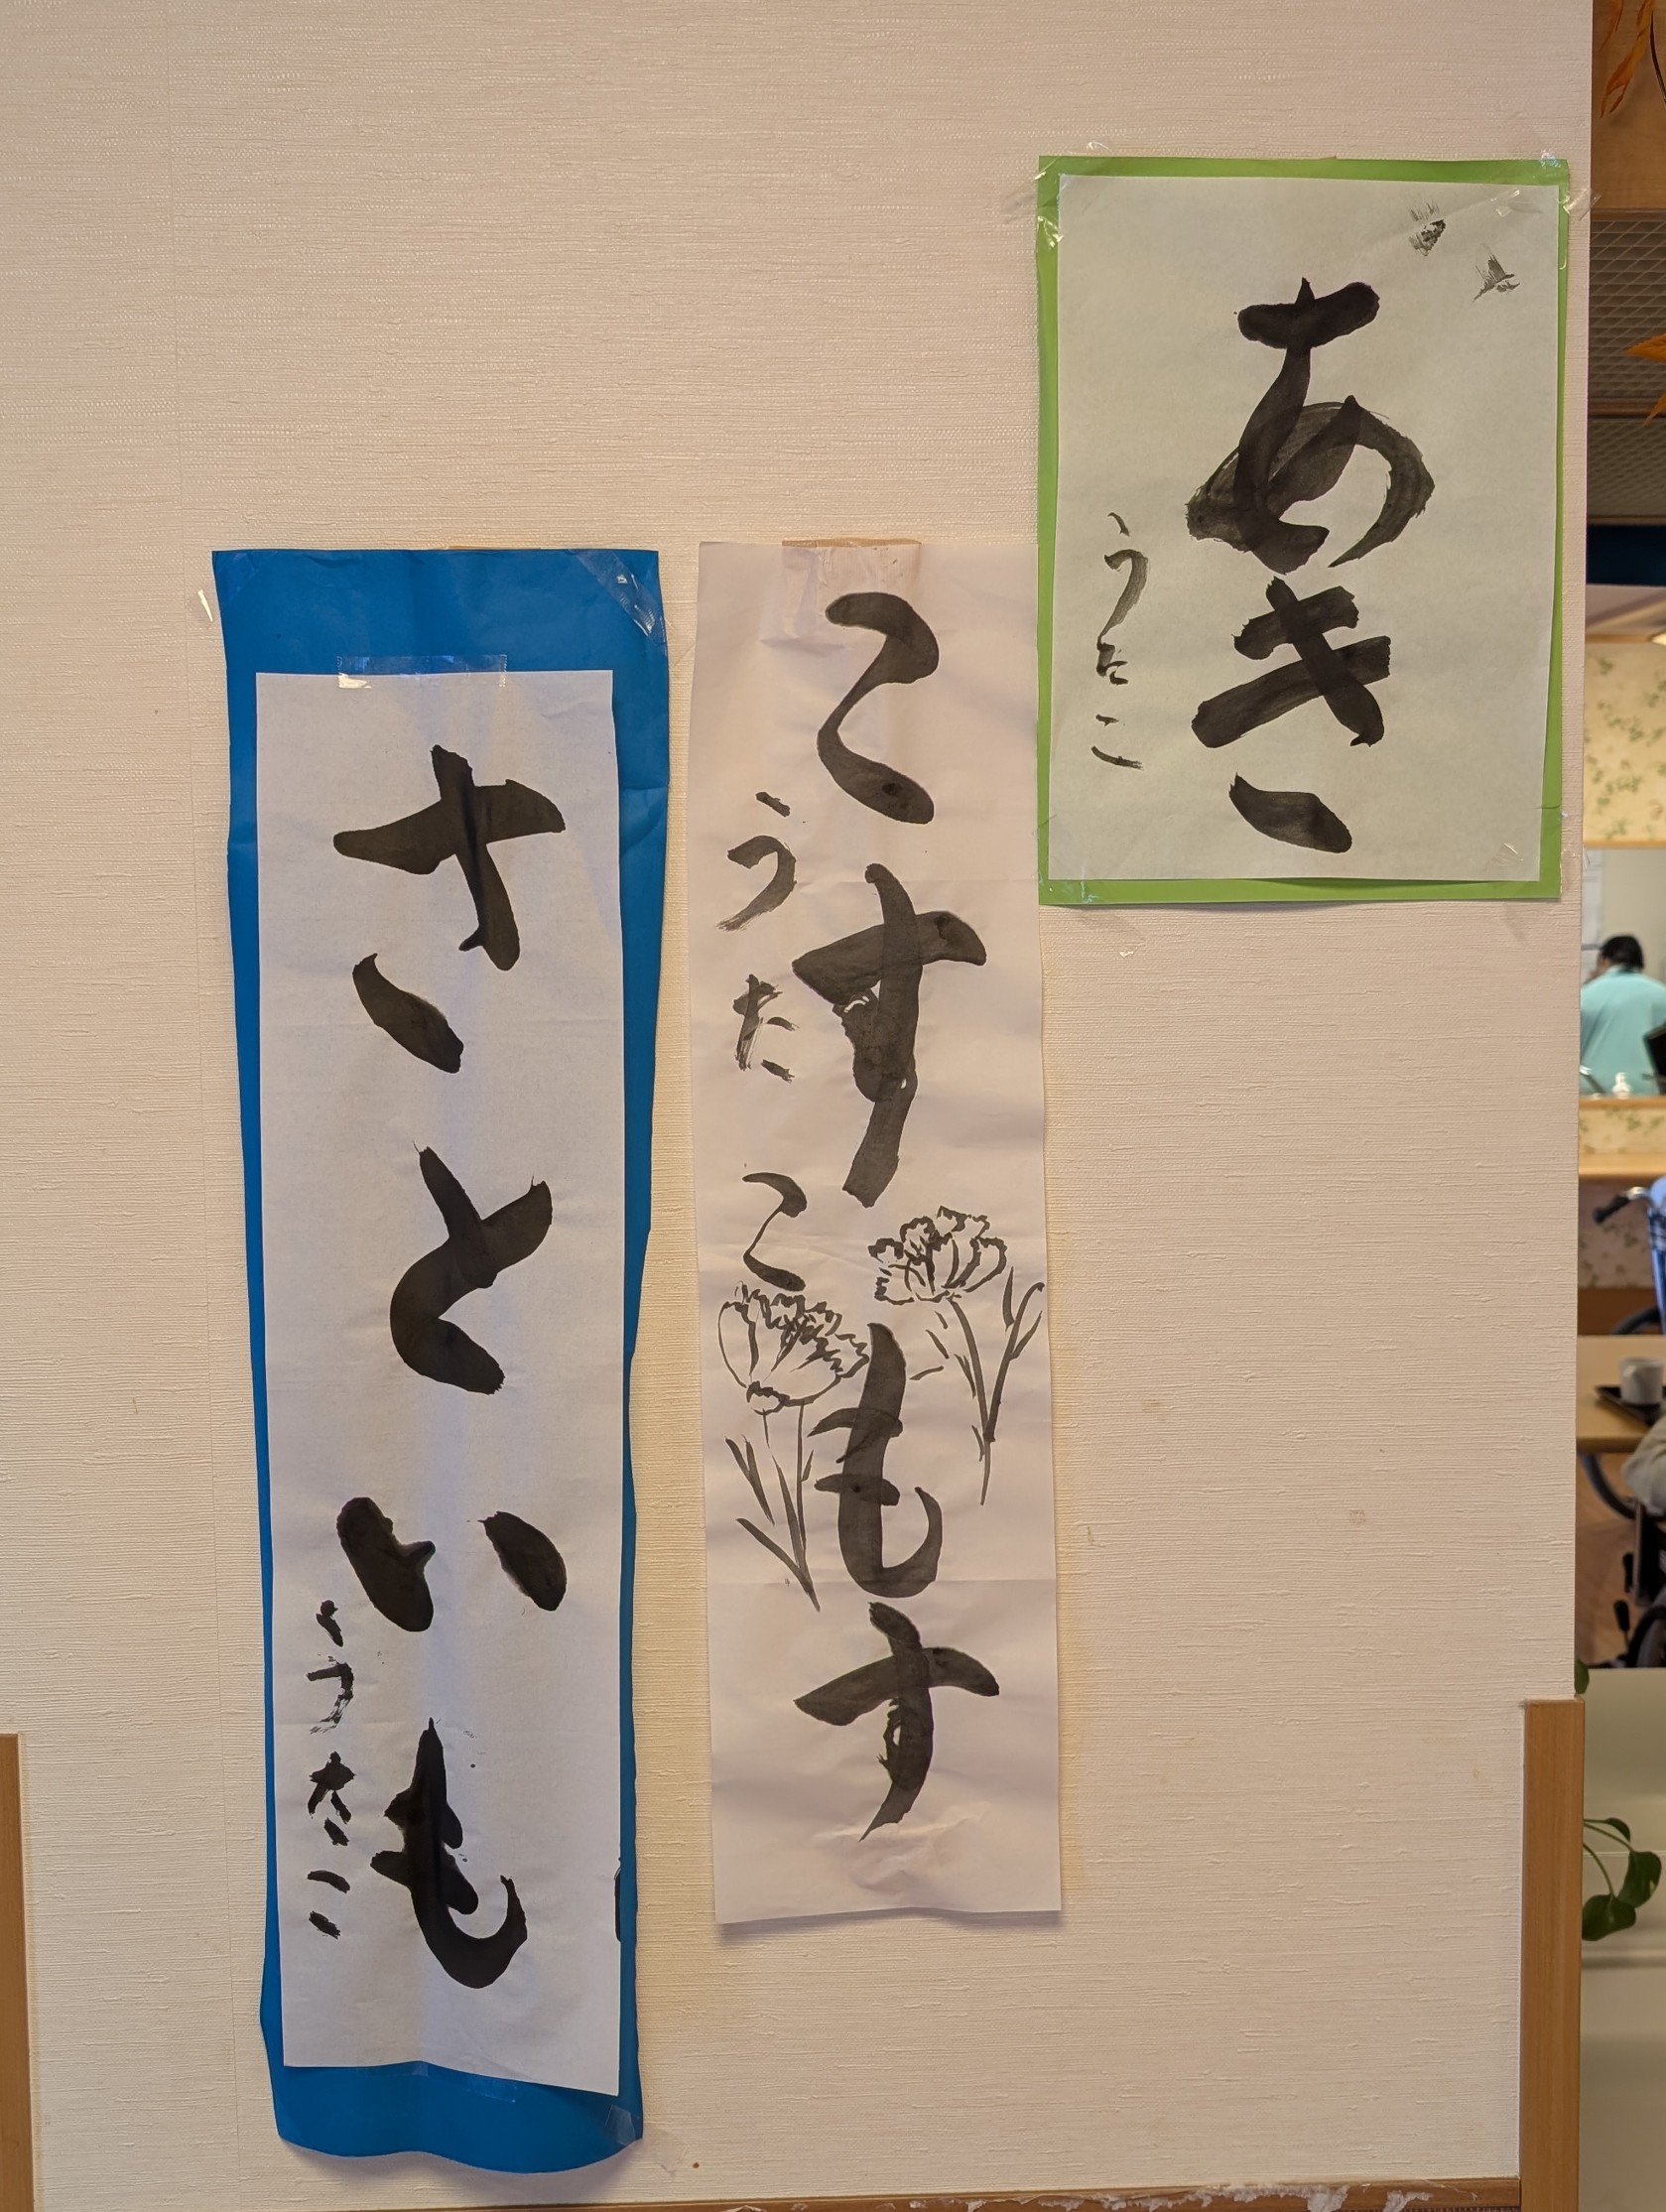 あき
うたこ
こすもす
うたこ
さといも
うたこ